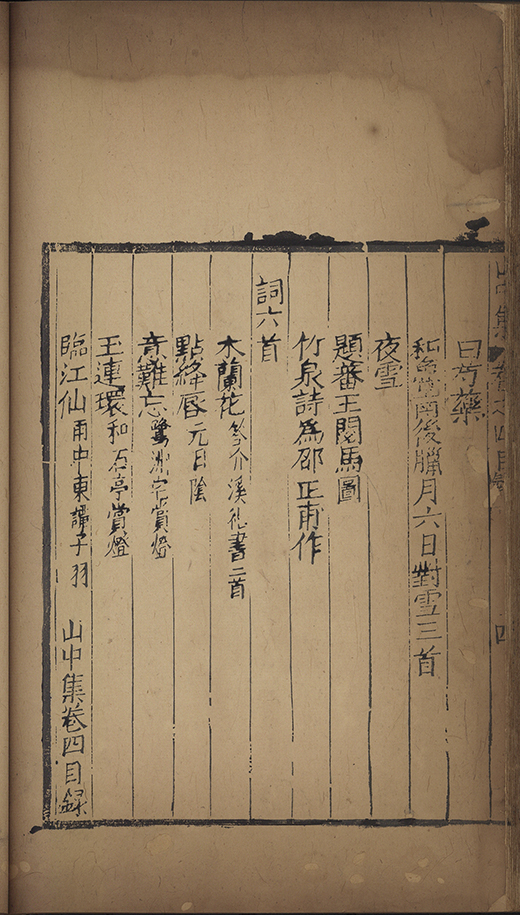 山中集 卷之四目錄 四
曰芍藥
和 南後臘月六日對雪三首
夜雪
題蕃王閱馬圖
竹泉詩為邵正甫作
詞六首
木蘭花 答介溪禮書二首
點絳唇 元日陰
意難忘 鷺洲宅賞燈
玉連環 和石亭賞燈
臨江仙 雨中東譚子羽 山中集卷四目録